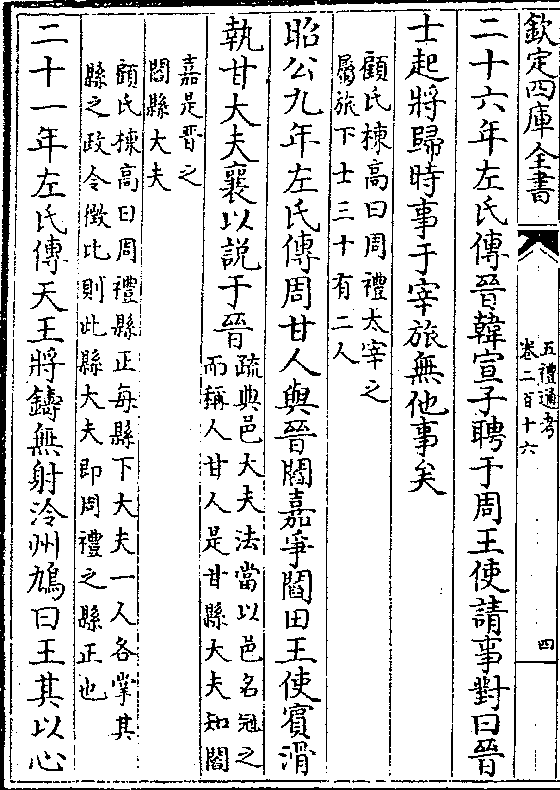 欽定四庫全書
五禮通考
卷二百十六
四
二十六年左氏傳晉韓宣子聘于周王使請事對曰晉
士起將歸時事于宰旅無他事矣
顧氏棟高曰周禮太宰之
屬旅下士三十有二人
昭公九年左氏傳周甘人與晉閻嘉爭閻田王使賓滑
執甘大夫襄以說于晉
疏典邑大夫法當以邑名冠之
而稱人甘人是甘縣大夫知閻
嘉是晉之
閻縣大夫
顧氏棟高曰周禮縣正每縣下大夫一人各掌其
縣之政令徵比則此縣大夫即周禮之縣正也
二十一年左氏傳天王將鑄無射泠州鳩曰王其以心